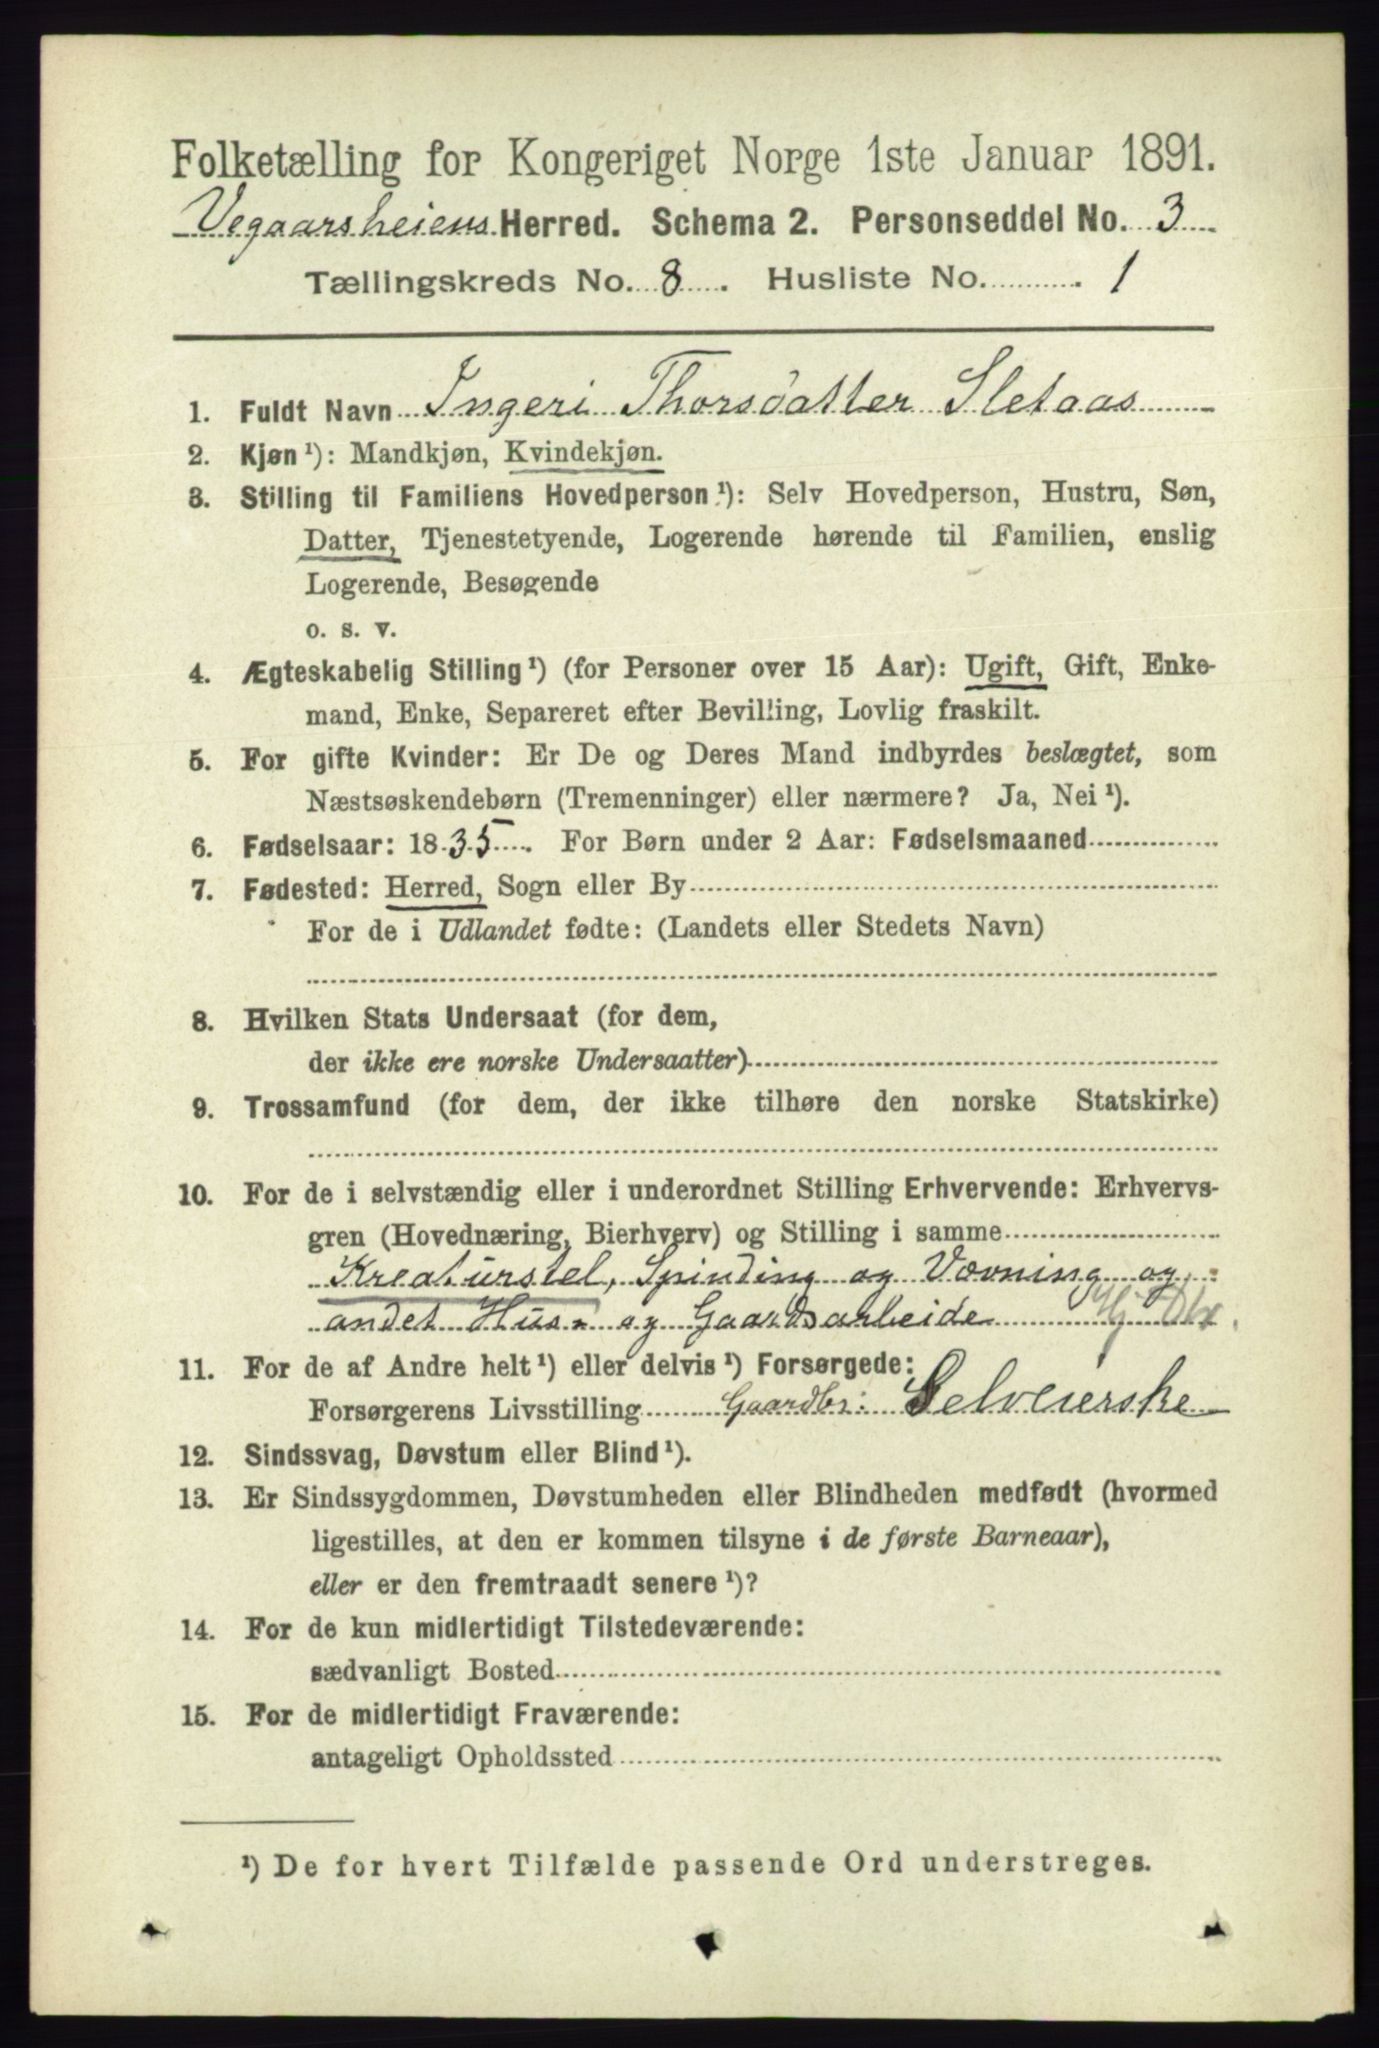 Folketælling for Kongeriget Norge 1ste Januar 1891.
Vegaarsheiens Herred. Schema 2. Personseddel No. 3
Tællingskreds No. 8. Husliste No. 1
1. Fuldt Navn Ingeri Thorsdatter Sletaas
2. Kjøn ¹): Mandkjøn, Kvindekjøn.
3. Stilling til Familiens Hovedperson ¹): Selv Hovedperson, Hustru, Søn,
Datter, Tjenestetyende, Logerende hørende til Familien, enslig
Logerende, Besøgende
o. s. v.
4. Ægteskabelig Stilling ¹) (for Personer over 15 Aar): Ugift, Gift, Enke-
mand, Enke, Separeret efter Bevilling, Lovlig fraskilt.
5. For gifte Kvinder: Er De og Deres Mand indbyrdes beslægtet, som
Næstsøskendebørn (Tremenninger) eller nærmere? Ja, Nei ¹).
6. Fødselsaar: 1835. For Børn under 2 Aar: Fødselsmaaned
7. Fødested: Herred, Sogn eller By
For de i Udlandet fødte: (Landets eller Stedets Navn)
8. Hvilken Stats Undersaat (for dem,
der ikke ere norske Undersaatter)
9. Trossamfund (for dem, der ikke tilhøre den norske Statskirke)
10. For de i selvstændig eller i underordnet Stilling Erhvervende: Erhvervs-
gren (Hovednæring, Bierhverv) og Stilling i samme
Kreaturstel, Spinding og Vævning og
andet Hus- og Gaardsarbeide
11. For de af Andre helt ¹) eller delvis ¹) Forsørgede:
Forsørgerens Livsstilling Gaardbr: Selveierske
12. Sindssvag, Døvstum eller Blind ¹).
13. Er Sindssygdommen, Døvstumheden eller Blindheden medfødt (hvormed
ligestilles, at den er kommen tilsyne i de første Barneaar),
eller er den fremtraadt senere ¹)?
14. For de kun midlertidigt Tilstedeværende:
sædvanligt Bosted
15. For de midlertidigt Fraværende:
antageligt Opholdssted
¹) De for hvert Tilfælde passende Ord understreges.